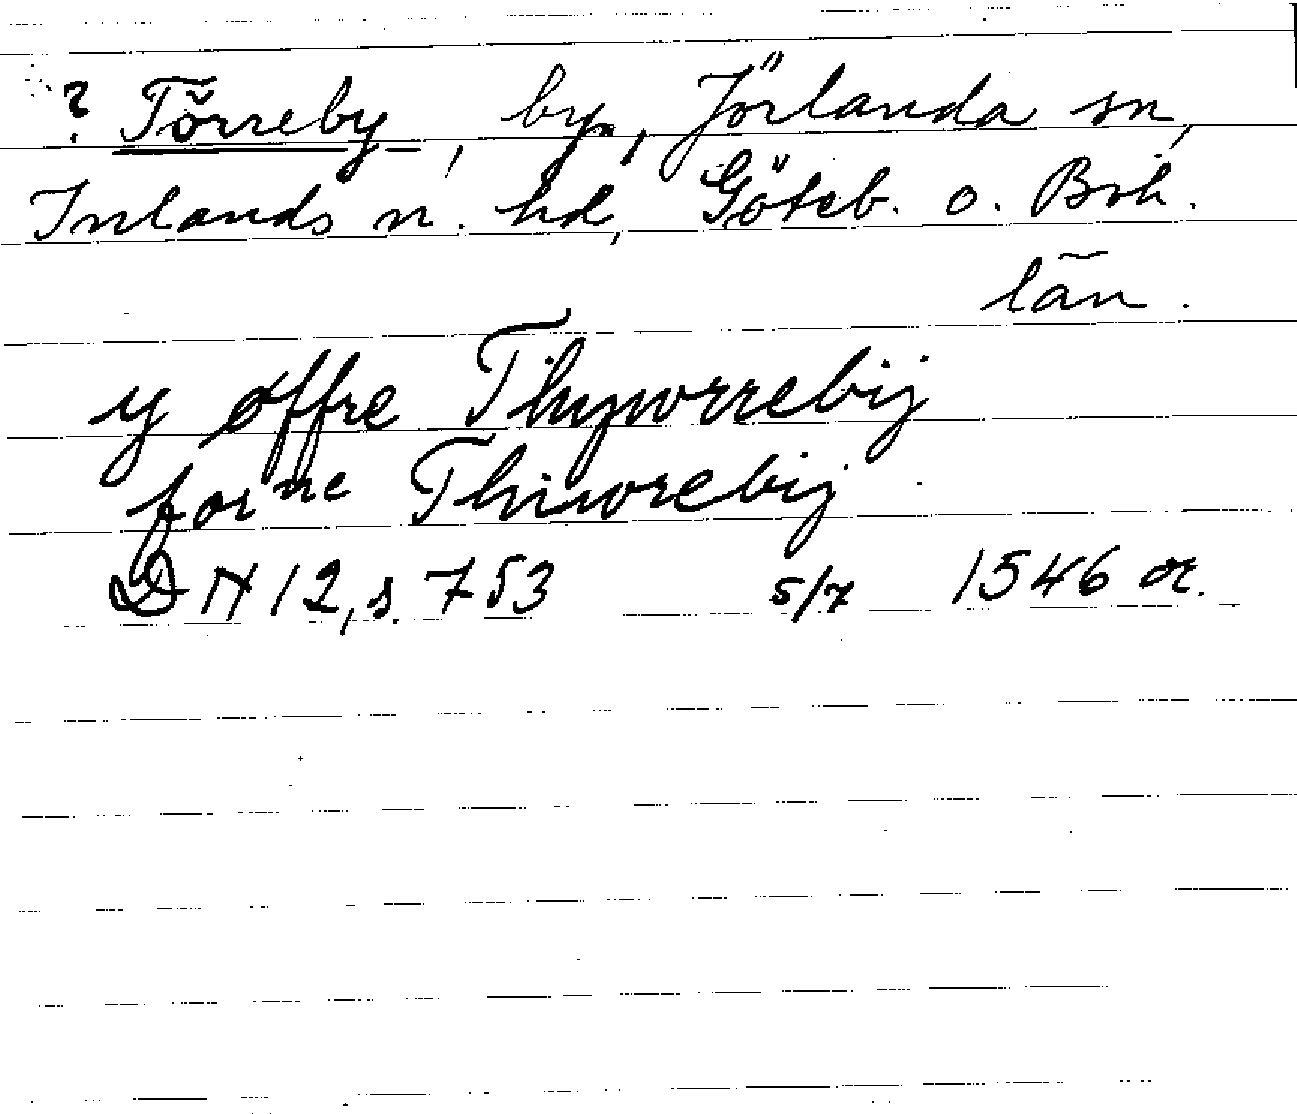 ? Törreby, by, Jörlanda sn,
Inlands n. hd, Göteb. o. Boh.
län.
y øffre Thyworrebij
forne Thiworebij.
DN 12, s. 753 5/7 1546 or.